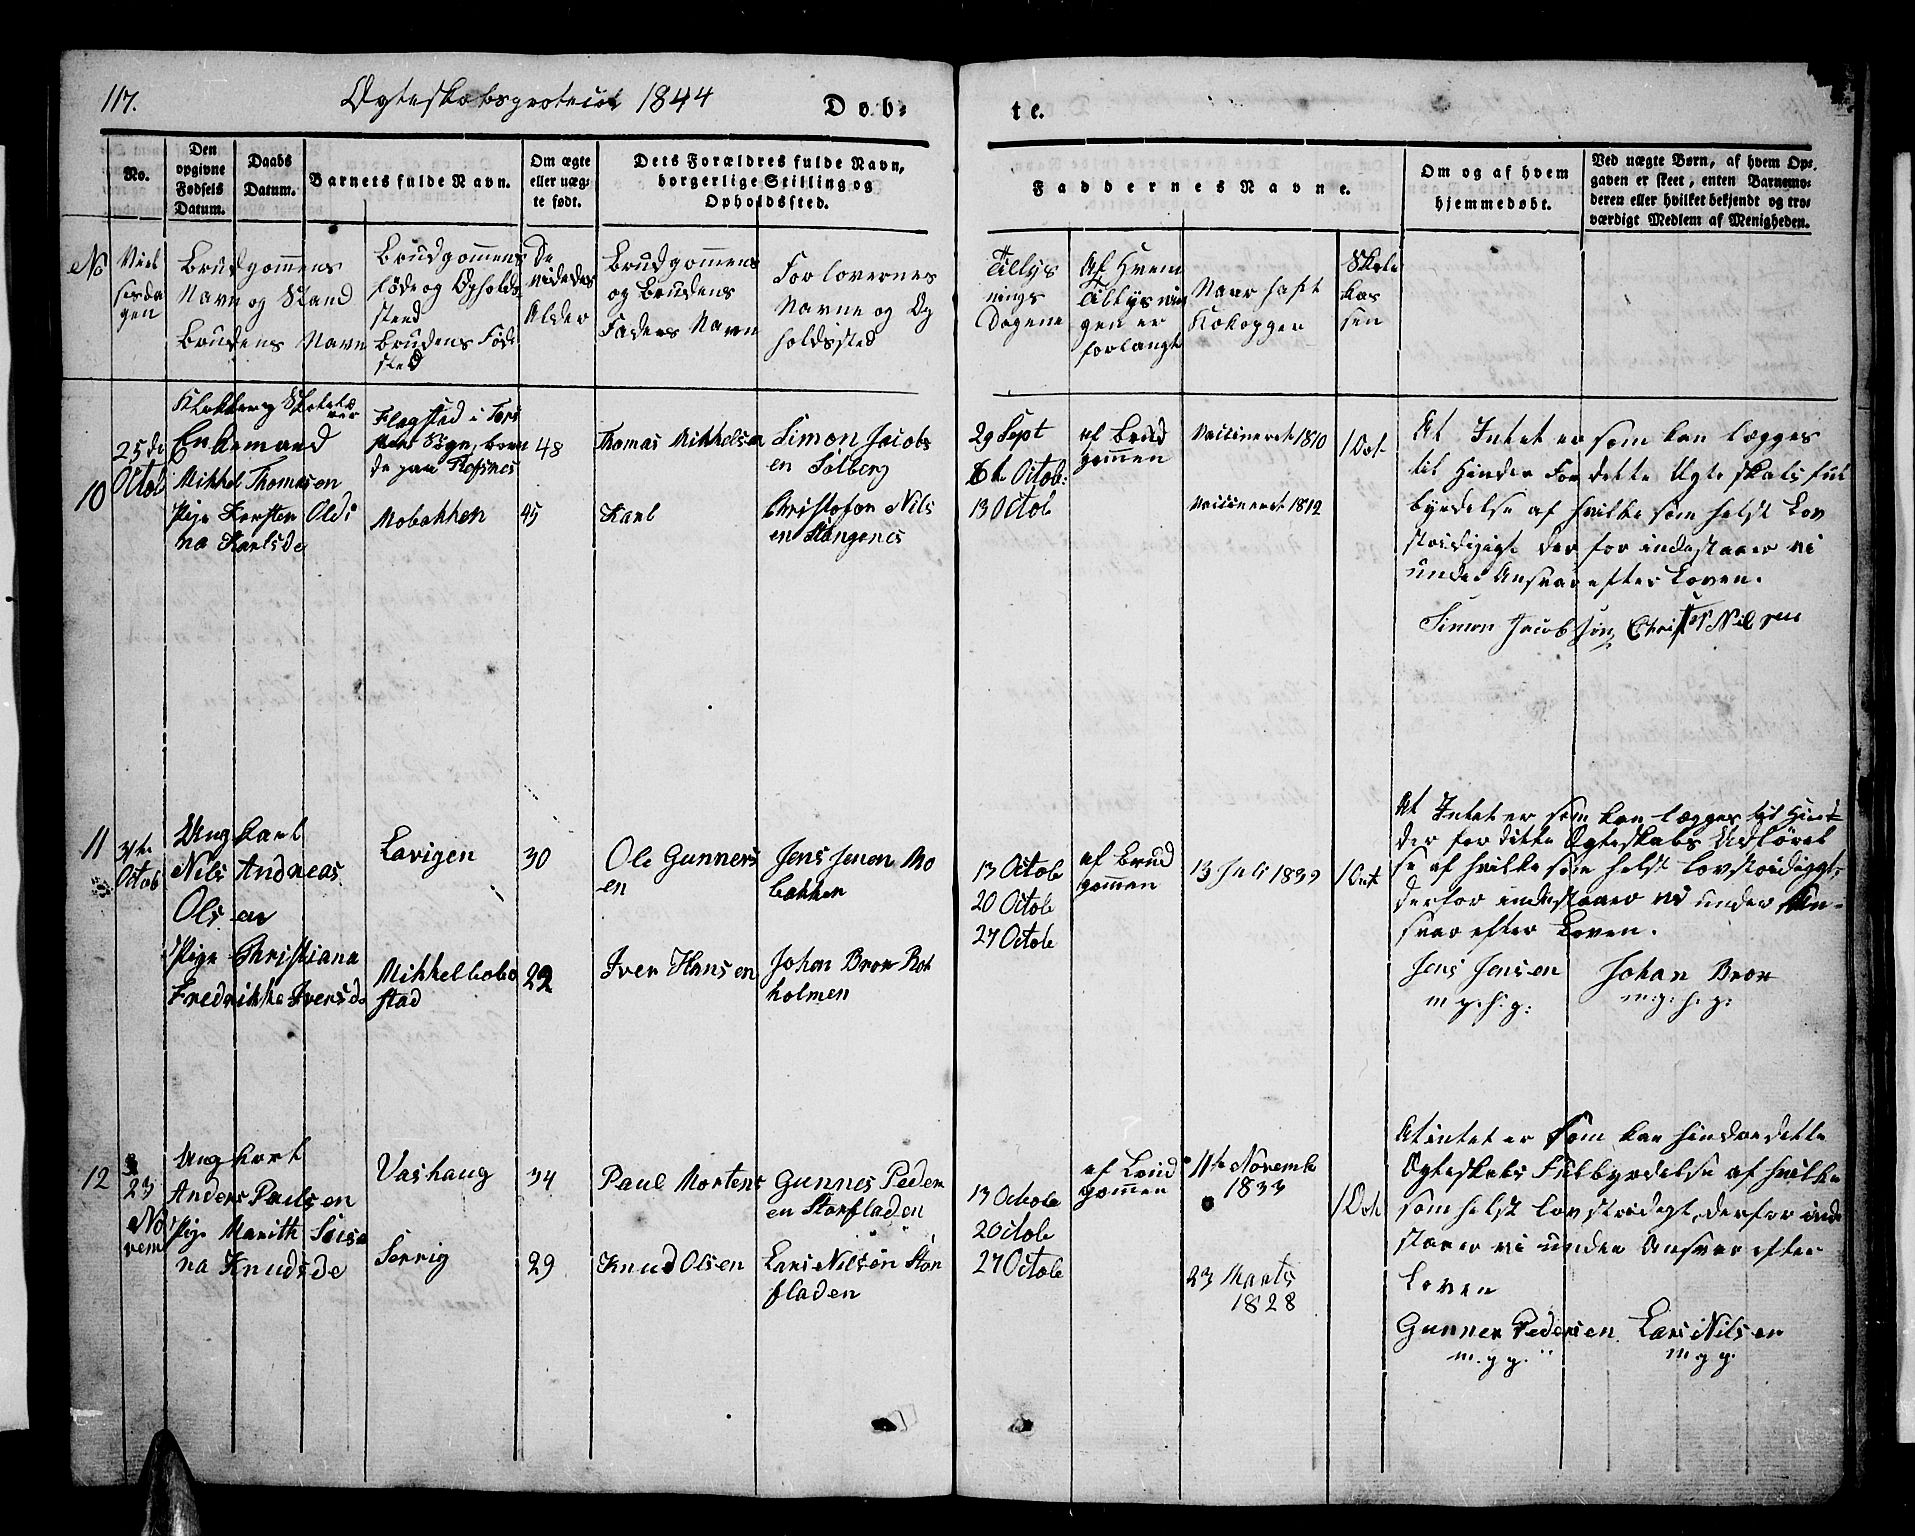 117.
Ægteskabsprotocol 1844
Døb-
te.
No.
Den
opgivne
Fødsels
Datum.
Daabs
Datum.
Barnets fulde Navn.
Om ægte
eller uæg-
te født.
Dets Forældres fulde Navn,
borgerlige Stilling og
Opholdssted.
Faddernes Navne.
Om og af hvem
hjemmedøbt.
Ved uægte Børn, af hvem Op-
gaven er skeet, enten Barnemo-
deren eller hvilket bekjendt og tro-
værdigt Medlem af Menigheden.
No
Viel
sesda
gen
Brudgommens
Navn og Stand
Brudens Navn
Brudgommens
Føde og Opholds
sted
Brudens Føde
sted
De
viedes
Alder
Brudgommens
og Brudens
Faders Navn
Forlovernes
Navne og Op
holdssted
Tillys
nings
Dagene
Af Hvem
Tillysnin
gen er
forlangt
Naar haft
Kokopper
Skole
kas
sen
10
25de
Octob
Klokker og Skolelæ
rer
Enkemand
Mikkel Thomasen
Pige Kersten Oldi
na Karlsde
Flagsted i Tors
Sogn, boen
de paa
Mobakken
48
45
Thomas Mikkelsen
Karl
Simon Jacobs
en Solberg
Christofer Nils
en Stangenes
29 Sept
6te Octob:
13 Octob
af Brud
gommen
Vaccineret 1810
Vaccineret 1812
1 Ort
At Intet er som kan lægges
til Hinder for dette Ægteskabs ful
byrdelse af hvilke som helst Lov
stridigigt derfor indestaaer vi
under Ansvar efter Loven.
Simon Jacobsön Christ N Nilsen
11
31te
Octob
Ungkarl
Nils Andreas
Olsen
Pige Christiana
Fredrikke Iversde
Lavigen
Mikkelbobo
stad
30
22
Ole Gunners
en
Iver Hansen
Jens Jensen Mo
bakken
Johan Bror Rot
holmen
13 Octob
20 Octob
27 Octob
af Brud
gommen
13 Juli 1839
1 Ort
At Intet er som kan lægges til Hin-
der for dette Ægteskabs Udförel
se af hvilke som helst lovstridiggt,
derfor indestaaer vi under An-
svar efter Loven.
Jens Jensen
m. p. h. p:
Johan Bror
m: p: h. p:
12
23
No
vem
Ungkarl
Anders Paulsen
Pige Marith Seisa
na Knudsde
Vashaug
Serrig
34
29
Paul Mortens
Knud Olsen
Gunnes Peder
en Storfladen
Lars Nilsen Stor
fladen
13 Octob
20 Octob
27 Octob
af Brud
gommen
11te Novemb
1833
23 Marts
1828
1 Ort
At intet er som kan hindre dette
Ægteskabs Fulbyrdelse af hvilke
som helst lovstridigt, derfor inde
staaer vi under Ansvar efter
Loven
Gunner Pedersen
m. p p.
Lars Nilsen
m p p.